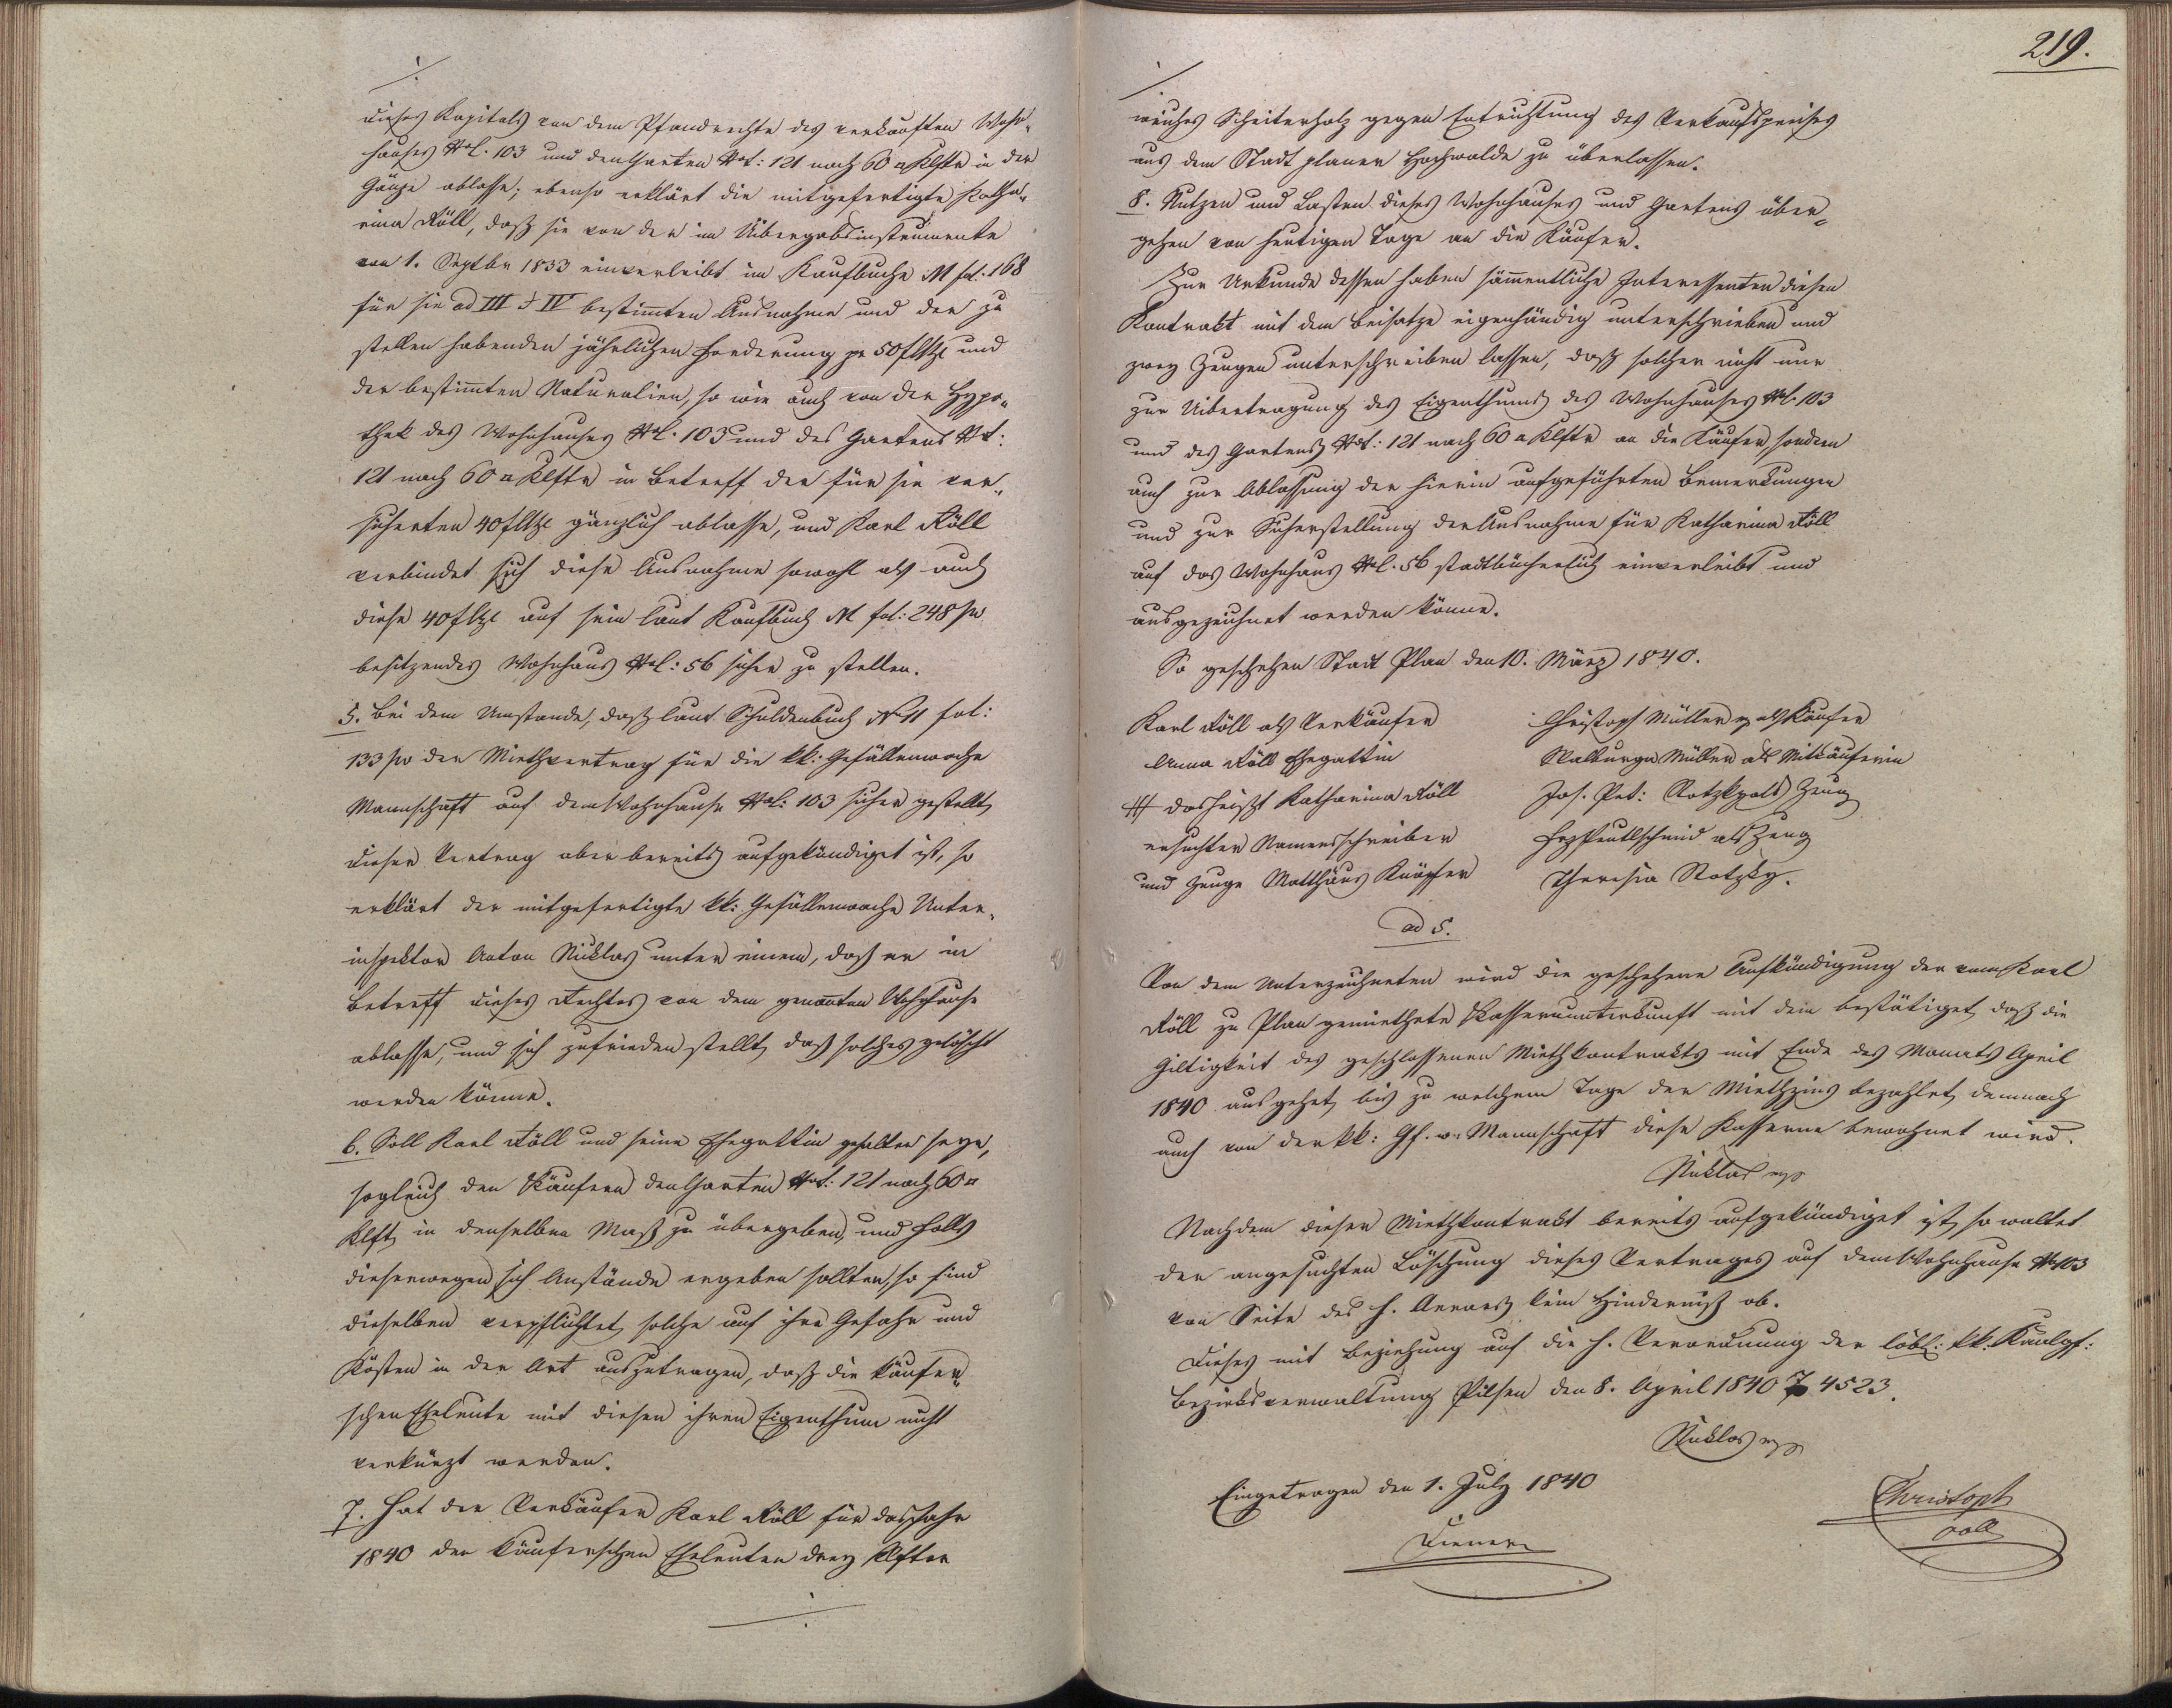 ./.
dieses Kapitals von dem Pfandrechte des verkauften Wohn-
hauses Nol. 103 und den Garten Not: 121 nach 60 □ Klftr in der
Gänze ablasse; ebenso erklärt die mitgefertigte Katha-
rina Köll, daß sie von der im Uibergabsinstrumente
von 1. Septbr 1833 einverleibt im Kaufbuche M fol. 168
für sie ad III & IV bestim̄ten Ausnahme und der zu
stellen habenden jährlichen Forderung pr 50 f und
der bestim̄ten Naturalien, so wie auch von der Hypo-
thek des Wohnhauses Nol. 103 und des Gartens Not:
121 nach 60 □ Klftr in Betreff der für sie ver-
sicherten 40 f gänzlich ablasse, und Karl Köll
verbindet sich diese Ausnahme sowohl als auch
diese 40 f auf sein laut Kaufbuch M fol: 248 pv
besitzendes Wohnhaus Nol: 56 sicher zu stellen.
5. Bei dem Umstande, daß laut Schuldenbuch No 11 fol:
133 pv der Miethvertrag für die kk: Gefällenwache
Mannschaft auf dem Wohnhause Nol: 103 sicher gestellt,
dieser Vertrag aber bereits aufgekündiget ist, so
erklärt der mitgefertigte kk: Gefällenwache Unter-
inspektor Anton Niklas unter einem, daß er in
Betreff dieses Rechtes von dem genannten Wohnhause
ablasse, und sich zufrieden stellt, daß solches gelöscht
werden könne.
6. Soll Karl Köll und seine Ehegattin gehalten seyn,
sogleich den Käufern den Garten Not: 121 nach 60 □
Klft, in denselben Maß zu übergeben, und falls
dieserwegen sich Anstände ergeben sollten, so sind
dieselben verpflichtet, solche auf ihre Gefahr und
Kösten in der Art auszutragen, daß die käufer-
schen Eheleute mit diesen ihren Eigenthum nicht
verkürzt werden.
7. Hat der Verkäufer Karl Köll für das Jahr
1840 den käuferschen Eheleuten drey Klftn
./.
219.
./.
weiches Scheiterholz gegen Entrichtung des Verkaufspreises
aus dem Stadt planer Hochwalde zu überlassen.
8. Nutzen und Lasten dieses Wohnhauses und Gartens über-
gehen von heutigen Tage an die Käufer.
Zur Urkunde dessen haben säm̄entliche Interessenten diesen
Kontrakt mit dem Beisatze eigenhändig unterschrieben und
zwey Zeugen unterschreiben lassen, daß solcher nicht nur
zur Uibertragung des Eigenthums des Wohnhauses Nol. 103
und des Gartens Not: 121 nach 60 □ Klftr an die Käufer, sondern
auch zur Ablassung der hierin aufgeführten Bemerkungen
und zur Sicherstellung der Ausnahme für Katharina Köll
auf das Wohnhaus Nol. 56 stadtbücherlich einverleibt und
ausgezeichnet werden könne.
So geschehen Stadt Plan den 10. März 1840.
Karl Köll als Verkäufer
Anna Köll Ehegattin
+++ das heißt Katharina Köll
ersuchter Namensschreiber
und Zeuge Matthäus Knöpfer
Christoph Müller als Käufer
Walburga Müller als Mitkäuferin
Jos. Pet: Zeug
als Zeug
Theresia Rotzky.
ad 5.
Von dem Unterzeichneten wird die geschehene Aufkündigung der vom Karl
Köll zu Plan gemiethete Kassernunterkunft mit dem bestätiget, daß die
Giltigkeit des geschlossenen Miethkontrakts mit Ende des Monats April
1840 ausgehet, bis zu welchem Tage der Miethzins bezahlet, demnach
auch von der kk: Gf. w. Mannschaft diese Kasserne bewohnet wird.
Niklas mp
Nachdem dieser Miethkontrakt bereits aufgekündiget ist, so waltet
der angesuchten Löschung dieses Vertrages auf dem Wohnhause No 103
von Seite des h. Aerars kein Hinderniß ob.
Dieses mit Beziehung auf die h. Verordnung der löbl: kk.
Bezirksverwaltung Pilsen den 8. April 1840 4523.
Niklas mp
Eingetragen den 1. July 1840
Diener
Christoph